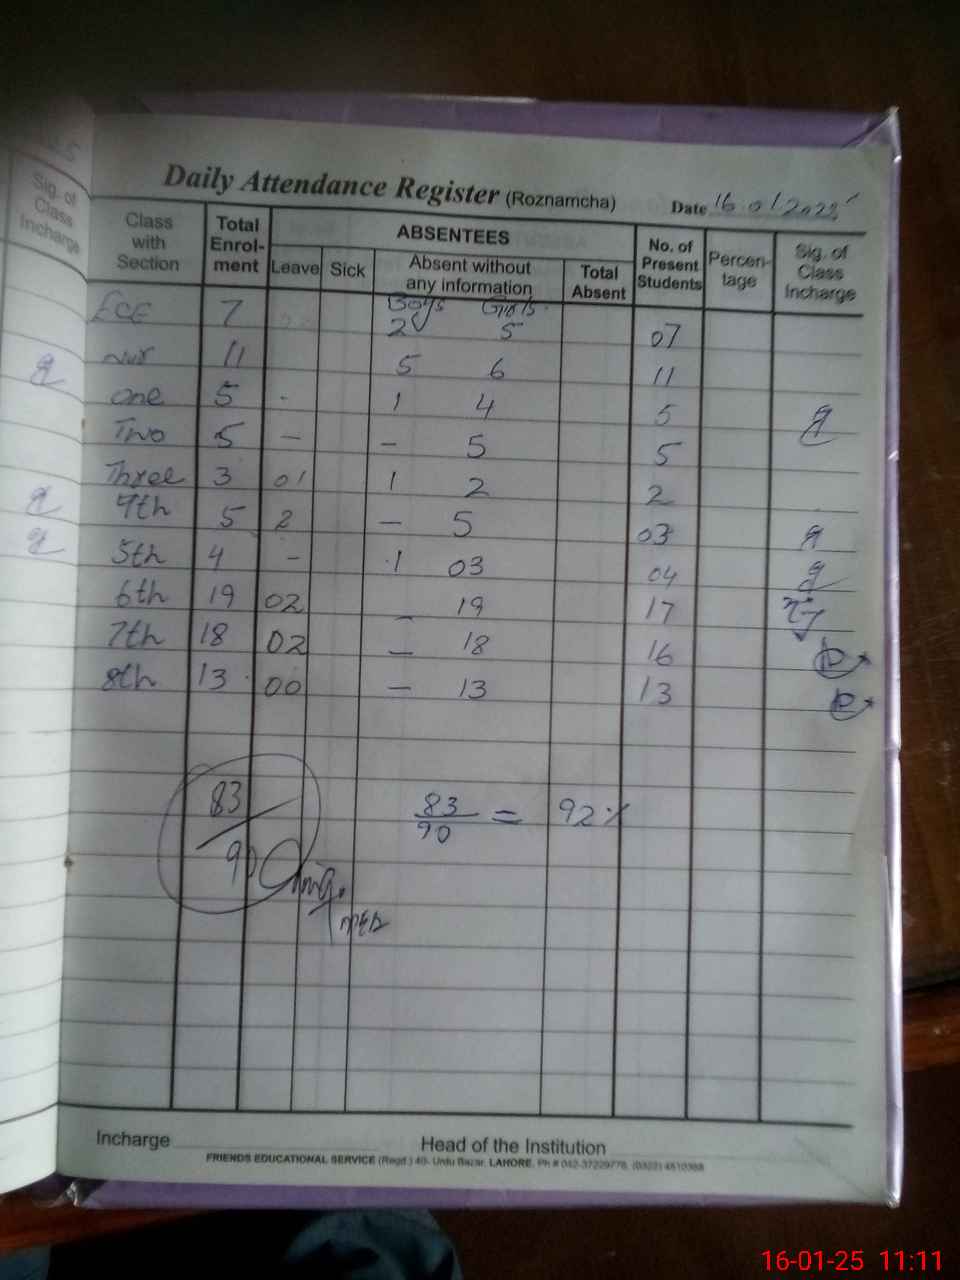 Sig. of
Class
Incharge
Daily Attendance Register (Roznamcha)
Date 16 01 2025
Class with Section | Total Enrol-ment | ABSENTEES | No. of Present Students | Percen-tage | Sig. of Class Incharge
Leave | Sick | Absent without any information | Total Absent
Boys Girls
ECE 7 2 5 07
Nur 11 5 6 11
One 5 - 1 4 5
Two 5 - - 5 5
Three 3 01 1 2 2
4th 5 2 - 5 03
5th 4 - 1 03 04
6th 19 02 - 19 17
7th 18 02 - 18 16
8th 13 00 - 13 13
83/90
83/90 = 92%
Incharge
Head of the Institution
FRIENDS EDUCATIONAL SERVICE (Regd.) 40- Urdu Bazar, LAHORE. Ph # 042-37229778, (0322) 4810368
16-01-25 11:11